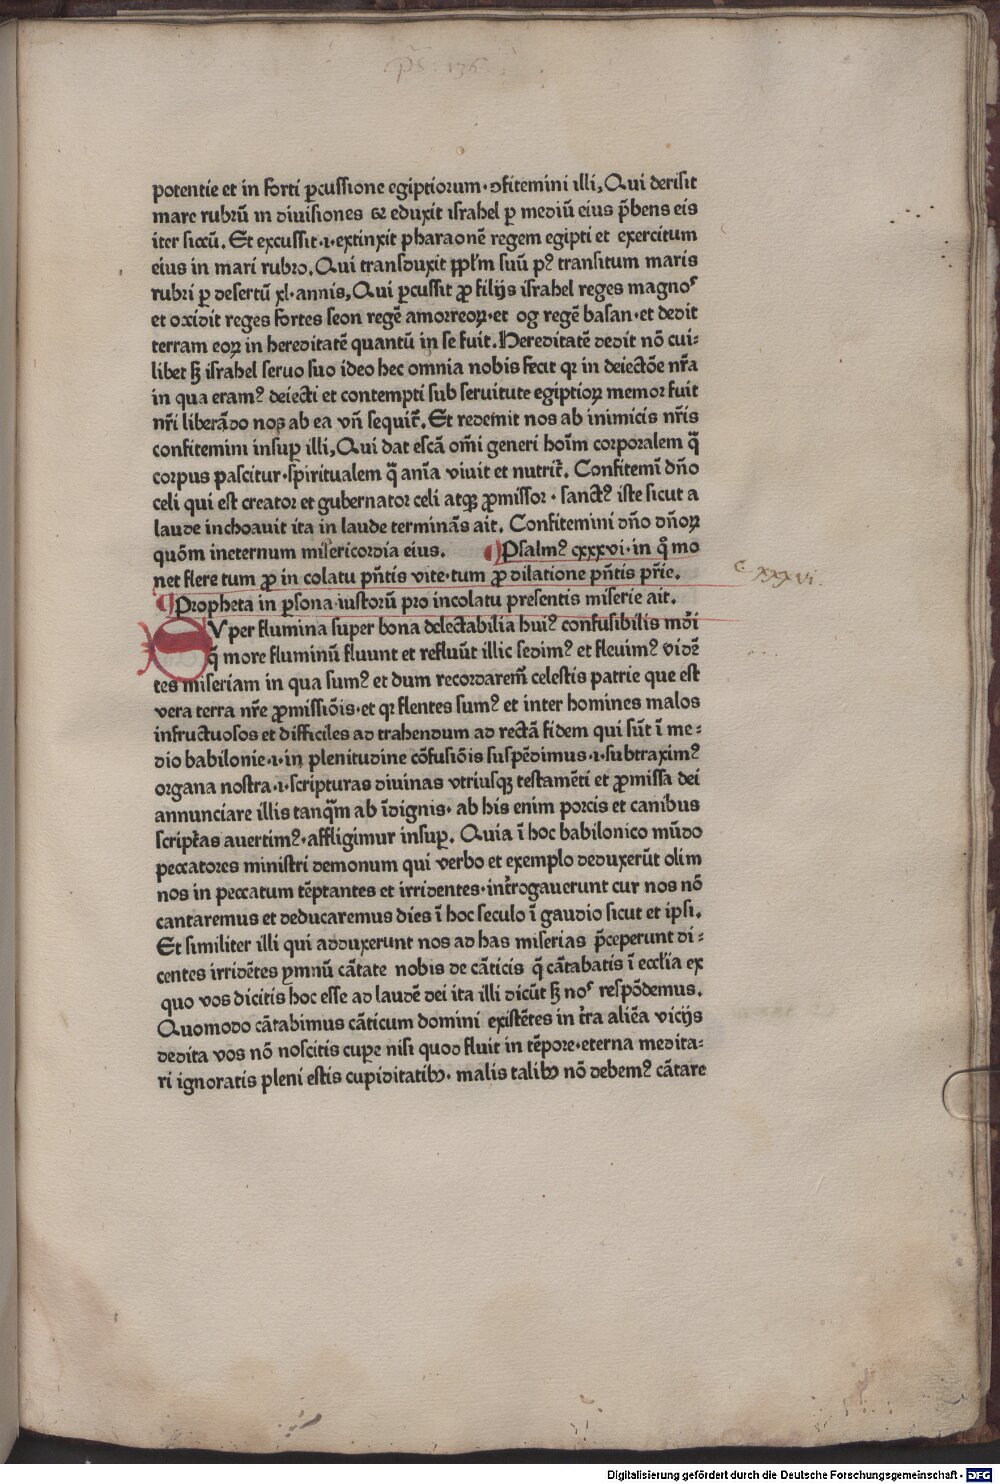 ps. 136
potentie et in forti ꝑcussione egiptiorum·ↄfitemini illi, Qui derisit
mare rubrū in diuisiones ⁊ eduxit israhel ꝑ mediū eius p̄bens eis
iter siccū. Et excussit·i·extinxit pharaonē regem egipti et exercitum
eius in mari rubro. Qui transduxit ppl̄m suū pꝰ transitum maris
rubri ꝑ desertū xl·annis, Qui ꝑcussit ꝓ filijs israhel reges magnoˢ
et occidit reges fortes seon regē amorreoꝝ·et og regē basan·et dedit
terram eoꝝ in hereditatē quantū in se fuit. Hereditatē dedit nō cui⸗
libet sꝫ israhel seruo suo ideo hec omnia nobis fecit qꝛ in deiectōe nr̄a
in qua eramꝰ deiecti et contempti sub seruitute egiptioꝝ memor fuit
nr̄i liberādo nos ab ea vn̄ sequit᷑. Et redemit nos ab inimicis nr̄is
confitemini insuꝑ illi, Qui dat escā om̄i generi hoīm corporalem q̄
corpus pascitur·spiritualem q̄ anīa viuit et nutrit᷑. Confitemī dn̄o
celi qui est creator et gubernator celi atqꝫ ꝓmissor·sanctꝰ iste sicut a
laude inchoauit ita in laude terminās ait. Confitemini dn̄o dn̄oꝝ
quōm ineternum misericordia eius. Psalmꝰ cxxxvi·in q̊ mo
net flere tum ꝓ in colatu pn̄tis vite·tum ꝓ dilatione pn̄tis pr̄ie.
c xxxvi.
Propheta in ꝑsona iustorū pro incolatu presentis miserie ait.
SVper flumina super bona delectabilia huiꝰ confusibilis mūdi
q̄ more fluminū fluunt et refluūt illic sedimꝰ et fleuimꝰ vidē
tes miseriam in qua sumꝰ et dum recordarem̄ celestis patrie que est
vera terra nr̄e ꝓmissiōis·et qꝛ flentes sumꝰ et inter homines malos
infructuosos et difficiles ad trahendum ad rectā fidem qui sūt ī me⸗
dio babilonie·i·in plenitudine cōfusiōis suspēdimus·i·subtraximꝰ
organa nostra·i·scripturas diuinas vtriusqꝫ testamēti et ꝓmissa dei
annunciare illis tanq̄m ab īdignis· ab his enim porcis et canibus
script᷑as auertimꝰ·affligimur insuꝑ. Quia ī hoc babilonico mūdo
peccatores ministri demonum qui verbo et exemplo deduxerūt olim
nos in peccatum tēptantes et irridentes·int᷑rogauerunt cur nos nō
cantaremus et deducaremus dies ī hoc seculo ī gaudio sicut et ipsi.
Et similiter illi qui adduxerunt nos ad has miserias p̄ceperunt di⸗
centes irridētes ymnū cātate nobis de cāticis q̄ cātabatis ī eccl̄ia ex
quo vos dicitis hoc esse ad laudē dei ita illi dicūt sꝫ noˢ respōdemus.
Quomodo cātabimus cāticum domini existētes in t᷑ra aliēa vicijs
dedita vos nō noscitis cuꝑe nisi quod fluit in tēpore·eterna medita⸗
ri ignoratis pleni estis cupiditatibꝫ· malis talibꝫ nō debemꝰ cātare
Digitalisierung gefördert durch die Deutsche Forschungsgemeinschaft - DFG